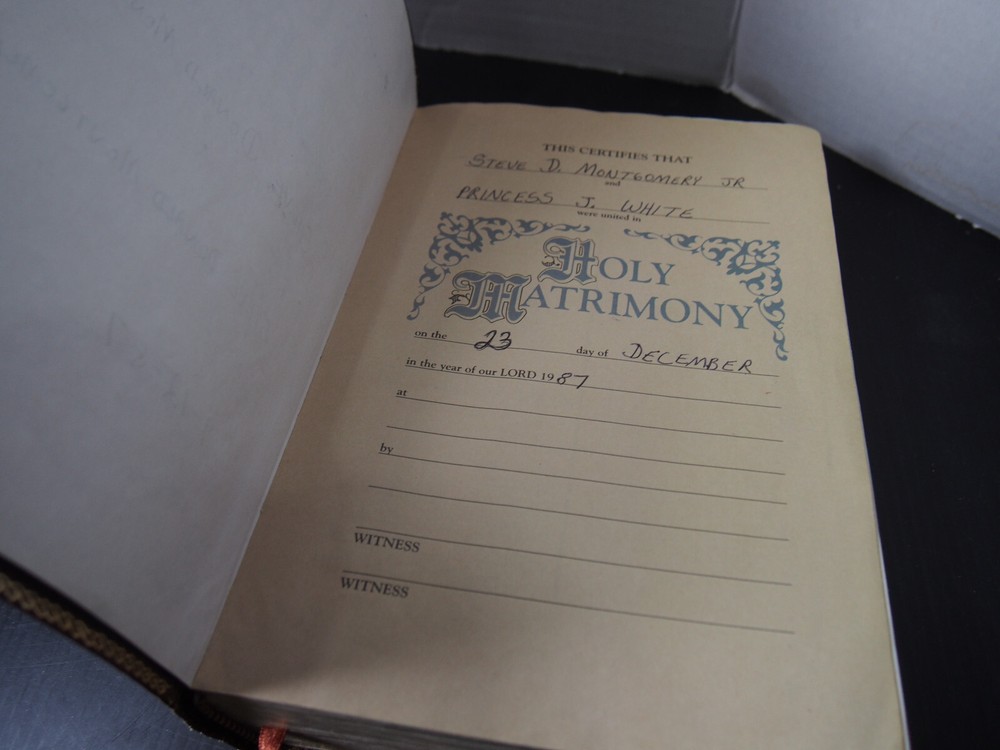 THIS CERTIFIES THAT
STEVE D. MONTGOMERY JR
and
PRINCESS J. WHITE
were united in
HOLY
MATRIMONY
on the 23 day of DECEMBER
in the year of our LORD 1987
at
by
WITNESS
WITNESS